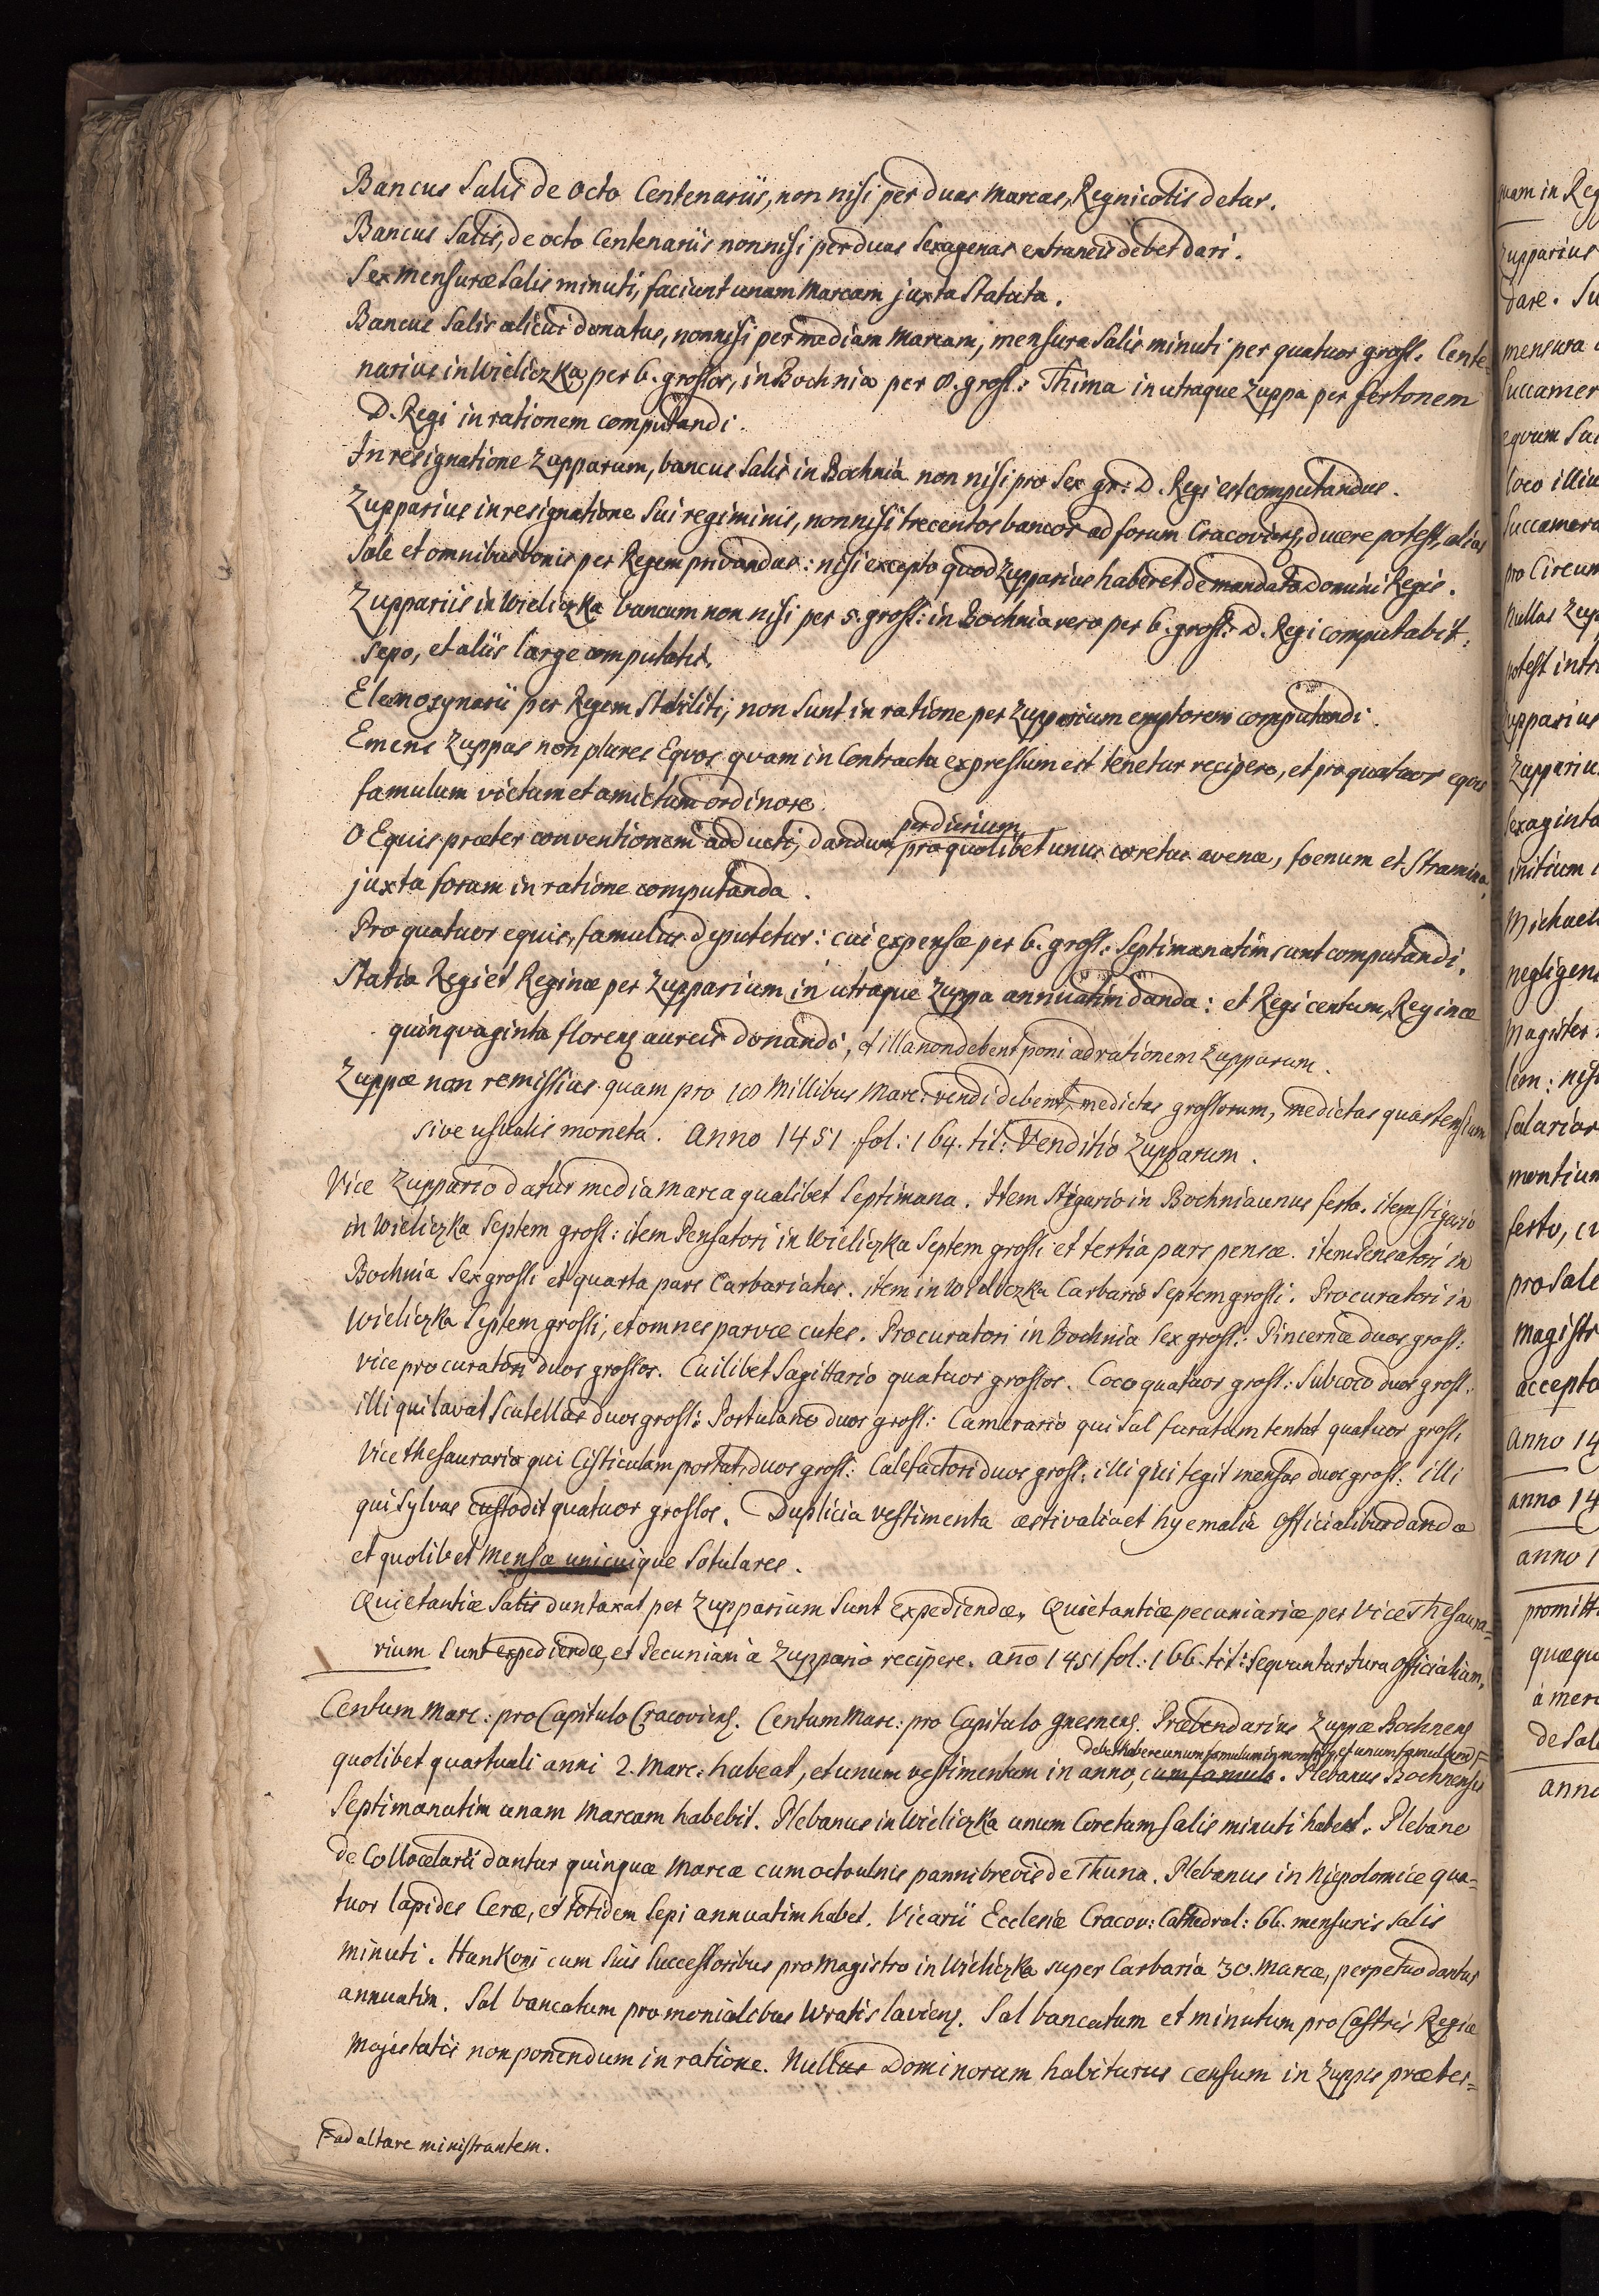 Bancus Salis de octo Centenariis, non nisi per duas Marcas, Regnicolis detur.
Bancus Salis, de octo Centenariis nonnisi per duas Sexagenas extraneis debet dari.
Sex mensuræ Salis minuti, faciunt unam Marcam juxta Statuta.
Bancus Salis alicui donatus, nonnisi per mediam Marcam, mensura Salis minuti per quatuor gross: Cente=
narius in Wieliczka per 6. grossos, in Bochnia per 8. gross: Thima in utraque Zuppa per fertonem
D. Regi in rationem computandi.
In resignatione Zupparum, bancus Salis in Bochnia non nisi pro Sex gr: D. Regi est computandus.
Zupparius in resignatione Sui regiminis, nonnisi trecentos bancos ad forum Cracoviens, ducere potest, alias
Sale et omnibus bonis per Regem privandus: nisi excepto quod Zupparius haberet de mandato Domini Regis.
Zuppariis in Wieliczka bancum non nisi per 5. gross: in Bochnia vero per 6. gross: D. Regi computabit:
Sepo, et aliis large computatis.
Elemosynarii per Regem Stabiliti, non Sunt in ratione per Zupparium emptorem computandi.
Emens Zuppas non plures Equos quam in Contractu expressum est tenetur recipere, et pro quatuor equis
famulum victum et amictum ordinare.
O Equis præter conventionem adducti, dandum pro quolibet perdiurium unus coretus avenæ, foenum et Stramina,
juxta forum in ratione computanda.
Pro quatuor equis, famulus deputetur: cui expensæ per 6. gross: Septimanatim sunt computandi.
Statio Regi et Reginæ per Zupparium in utraque Zuppa annuatim danda: et Regi centum, Reginæ
quinquaginta florenz aureis donandi, et illa non debent poni ad rationem Zupparum.
Zuppæ non remissius quam pro 18 Millibus Marc: vendi debent, medietas grossorum, medietas quartensium
sive usualis moneta. Anno 1451. fol: 164. tit: Venditio Zupparum.
Vice Zuppario datur media marca qualibet Septimana. Item Stigario in Bochnia unus ferto. item Stigario
in Wieliczka Septem gross: item Pensatori in Wieliczka Septem grossi et tertia pars pensæ. item Pensatori in
Bochnia Sex grossi et quarta pars Carbariatus. item in Wieliczka Carbario Septem grossi. Procuratori in
Wieliczka Septem grossi, et omnes parvæ cutes. Procuratori in Bochnia Sex gross: Pincernæ duos gross:
vice procuratori duos grossos. Cuilibet Sagittario quatuor grossos. Coco quatuor gross: Subcoco duos gross.
illi qui lavat Scutellas duos gross: Portulano duos gross: Camerario qui Sal furatum tentat quatuor gross,
Vicethesaurario qui Cisticulam portat, duos gross: Calefactori duos gross: illi qui tegit mensas duos gross: illi
qui Sylvas custodit quatuor grossos. Duplicia vestimenta æstivalia et hyemalia Officialibus danda
et quolibet mense unicuique Sotulares.
Quietantiæ Salis duntaxat per Zupparium Sunt expediendæ, Quietantiæ pecuniariæ per Vice Thesaura=
rium Sunt expediendæ, et Pecuniam a Zuppario recipere. año 1451 fol: 166. tit: Sequuntur Jura Officialium.
Centum Marc: pro Capitulo Cracoviens. Centum Marc: pro Capitulo gnesnens. Præbendarius Zuppæ Bochnens
quolibet quartuali anni 2. Marc: habeat, et unum vestimentum in anno, cum famulo. Plebanus Bochnensis
Septimanatim unam Marcam habebit. Plebanus in Wieliczka unum Coretum Salis minuti habeat. Plebano
dantur quinque Marcæ cum octo ulnis panni brevis de Thuna. Plebanus in Niepolomice qua=
tuor lapides Ceræ, et totidem Sepi annuatim habet. Vicarii Ecclesiæ Cracov: Cathedral: 66. mensuris Salis
minuti. Hankoni cum Suis Successoribus pro Magistro in Wieliczka super Carbaria 30. Marcæ, perpetuo dantur
annuatim. Sal bancatum pro monialibus Wratislaviens. Sal bancatum et minutum pro Castris Regiæ
Majestatis non ponendum in ratione. Nullus Dominorum habiturus censum in Zuppis præter=
ad altare ministrantem.
quam in Reg
Zupparius
dare. Su
mensura
Succamer
equum Su
loco illiu
Succamera
pro Circum
Nullas Zup
potest intr
Zupparius
Zupparius
Sexaginta
initium
Michael
negligen
Magister
lem: nisi
Salarior
montium
ferto, cu
pro Sale
Magistr
accepto
Anno 14
anno 14
anno 1
promitt
quæqu
a mer
de Sal
anno